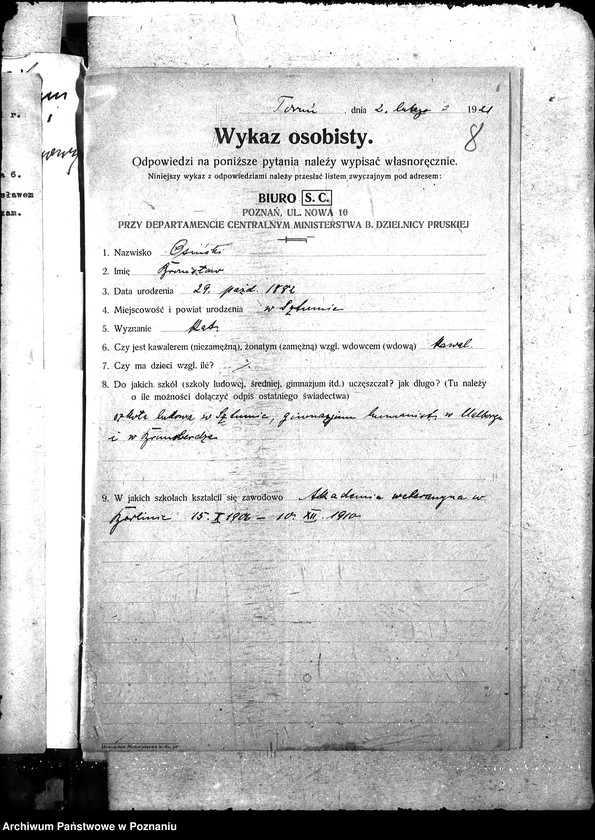 Toruń, dnia 2. lutego 1921
8
Wykaz osobisty.
Odpowiedzi na poniższe pytania należy wypisać własnoręcznie.
Niniejszy wykaz z odpowiedziami należy przesłać listem zwyczajnym pod adresem:
BIURO S. C.
POZNAŃ, UL. NOWA 10
PRZY DEPARTAMENCIE CENTRALNYM MINISTERSTWA B. DZIELNICY PRUSKIEJ
1. Nazwisko Osiński
2. Imię Bronisław
3. Data urodzenia 29. paźd. 1882
4. Miejscowość i powiat urodzenia w Sztumie
5. Wyznanie kat.
6. Czy jest kawalerem (niezamężną), żonatym (zamężną) wzgl. wdowcem (wdową) kawal.
7. Czy ma dzieci wzgl. ile?
8. Do jakich szkół (szkoły ludowej, średniej, gimnazjum itd.) uczęszczał? jak długo? (Tu należy
o ile możności dołączyć odpis ostatniego świadectwa)
szkoła ludowa w Sztumie, gimnazjum humanist. w
i w
9. W jakich szkołach kształcił się zawodowo Akademia weterynaryjna w
Berlinie 15. X 1906 — 10. XII. 1910.
r.
a 6.
sławem
zam.
Archiwum Państwowe w Poznaniu